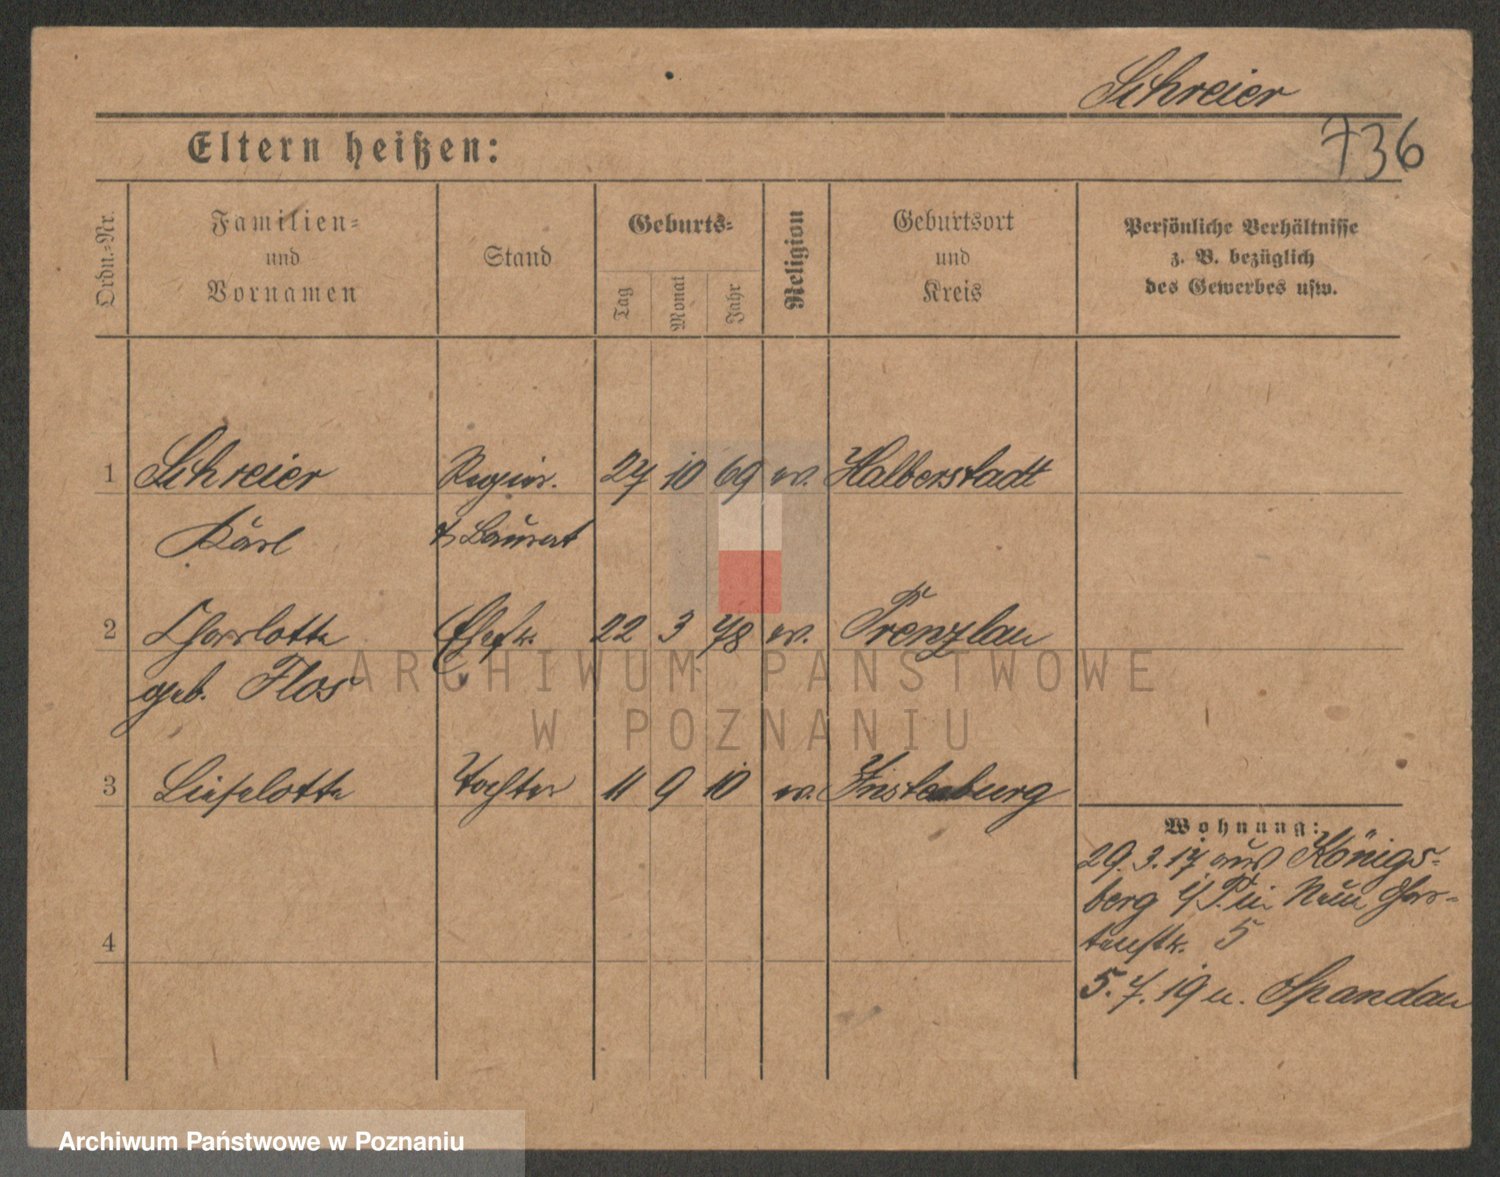 Schreier
736
Eltern heißen:
Ordn.-Nr.
Familien-
und
Vornamen
Stand
Geburts-
Tag
Monat
Jahr
Religion
Geburtsort
und
Kreis
Persönliche Verhältnisse
z. B. bezüglich
des Gewerbes usw.
1 Schreier 27 10 69 ev. Halberstadt
Karl u. Baurat
2 Charlotte Ehefr. 22 3 78 ev. Prenzlau
geb. Flos
3 Lieselotte Tochter 11 9 10 ev. Insterburg
4
Wohnung:
29.3.17 aus Königs-
berg i/P. in Neue Gar-
tenstr. 5
5.7.19 n. Spandau
ARCHIWUM PAŃSTWOWE
W POZNANIU
Archiwum Państwowe w Poznaniu